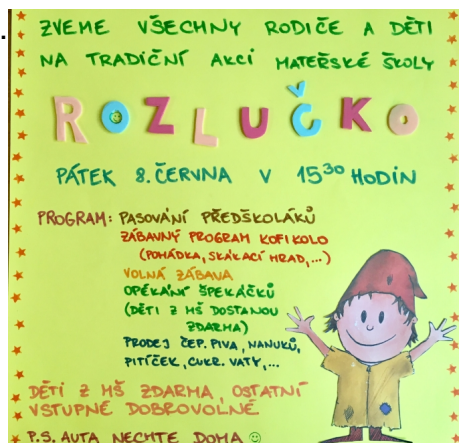 ZVEME VŠECHNY RODIČE A DĚTI
NA TRADIČNÍ AKCI MATEŘSKÉ ŠKOLY
ROZLUČKO
PÁTEK 8. ČERVNA V 15³⁰ HODIN
PROGRAM: PASOVÁNÍ PŘEDŠKOLÁKŮ
ZÁBAVNÝ PROGRAM KOFIKOLO
(POHÁDKA, SKÁKACÍ HRAD,...)
VOLNÁ ZÁBAVA
OPÉKÁNÍ ŠPEKÁČKŮ
(DĚTI Z MŠ DOSTANOU
ZDARMA)
PRODEJ ČEP. PIVA, NANUKŮ,
PITÍČEK, CUKR. VATY,...
DĚTI Z MŠ ZDARMA, OSTATNÍ
VSTUPNÉ DOBROVOLNÉ
P.S. AUTA NECHTE DOMA ☺